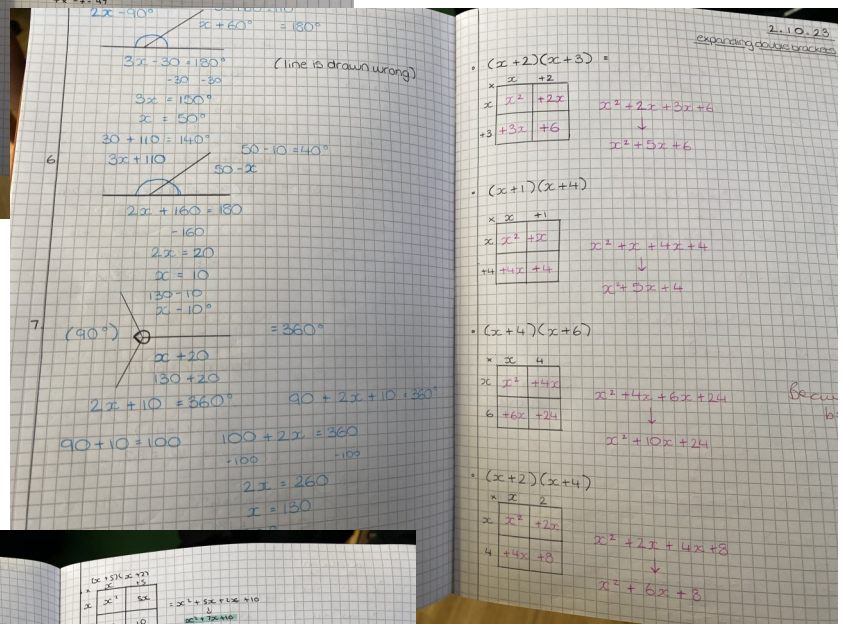 2x-90°
x+60° = 180°
3x-30=180°
-30 -30
(line is drawn wrong)
3x = 150°
x = 50°
30 + 110 = 140°
6
3x+110
50-10=40°
50-x
2x + 160 = 180
-160
2x = 20
x = 10
130-10
x-10°
7.
(90°)
= 360°
x+20
130+20
2x+10 = 360°
90 + 2x + 10 = 360°
90+10=100
100+2x = 360
-100 -100
2x = 260
x = 130
2.10.23
expanding double brackets
• (x+2)(x+3) =
× x +2
x x² +2x
+3 +3x +6
x²+2x+3x+6
↓
x²+5x+6
• (x+1)(x+4)
× x +1
x x² +x
+4 +4x +4
x²+x+4x+4
↓
x²+5x+4
• (x+4)(x+6)
× x 4
x x² +4x
6 +6x +24
x²+4x+6x+24
↓
x²+10x+24
• (x+2)(x+4)
× x 2
x x² +2x
4 +4x +8
x²+2x+4x+8
↓
x²+6x+8
(x+5)(x+2)
× x +5
x x² 5x
10
= x²+5x+2x+10
↓
x²+7x+10